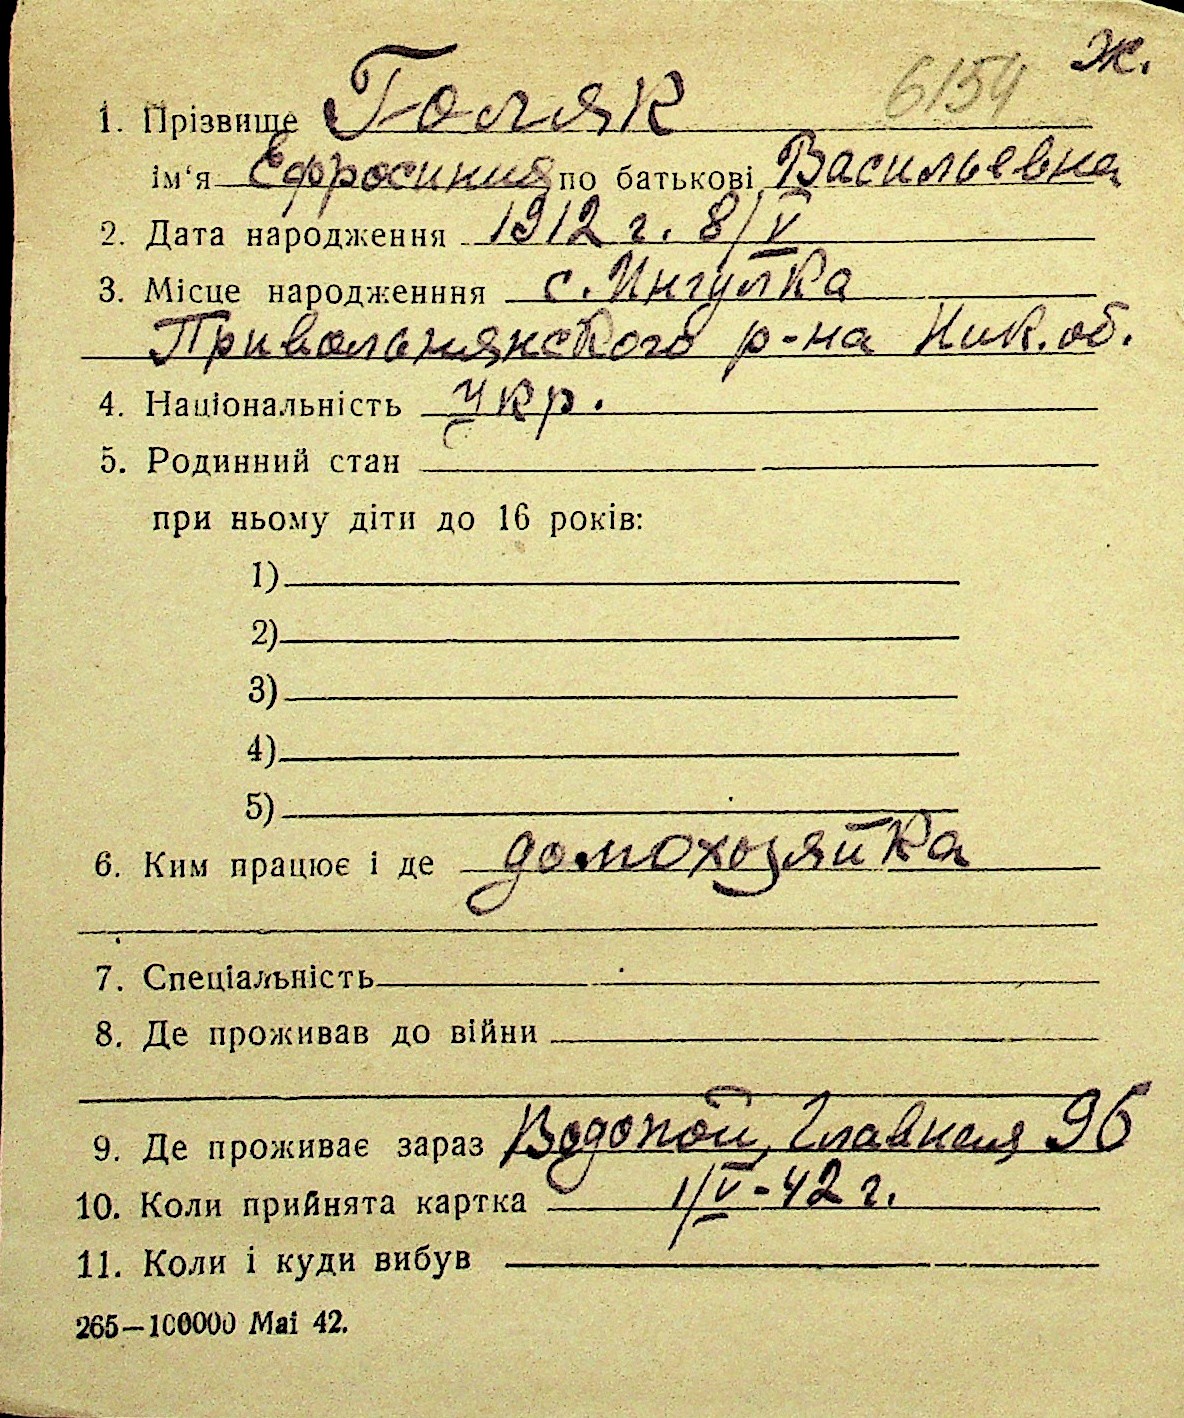 Ж.
6154
1. Прізвище Голяк
ім'я Ефросиния по батькові Васильевна
2. Дата народження 1912 г. 8/V
3. Місце народженння с. Ингулка
Привольнянского р-на Ник. об.
4. Національність Укр.
5. Родинний стан
при ньому діти до 16 років:
1)
2)
3)
4)
5)
6. Ким працює і де домохозяйка
7. Спеціальність
8. Де проживав до війни
9. Де проживає зараз Водопой, Главная 96
10. Коли прийнята картка 1/V-42 г.
11. Коли і куди вибув
265—100000 Mai 42.